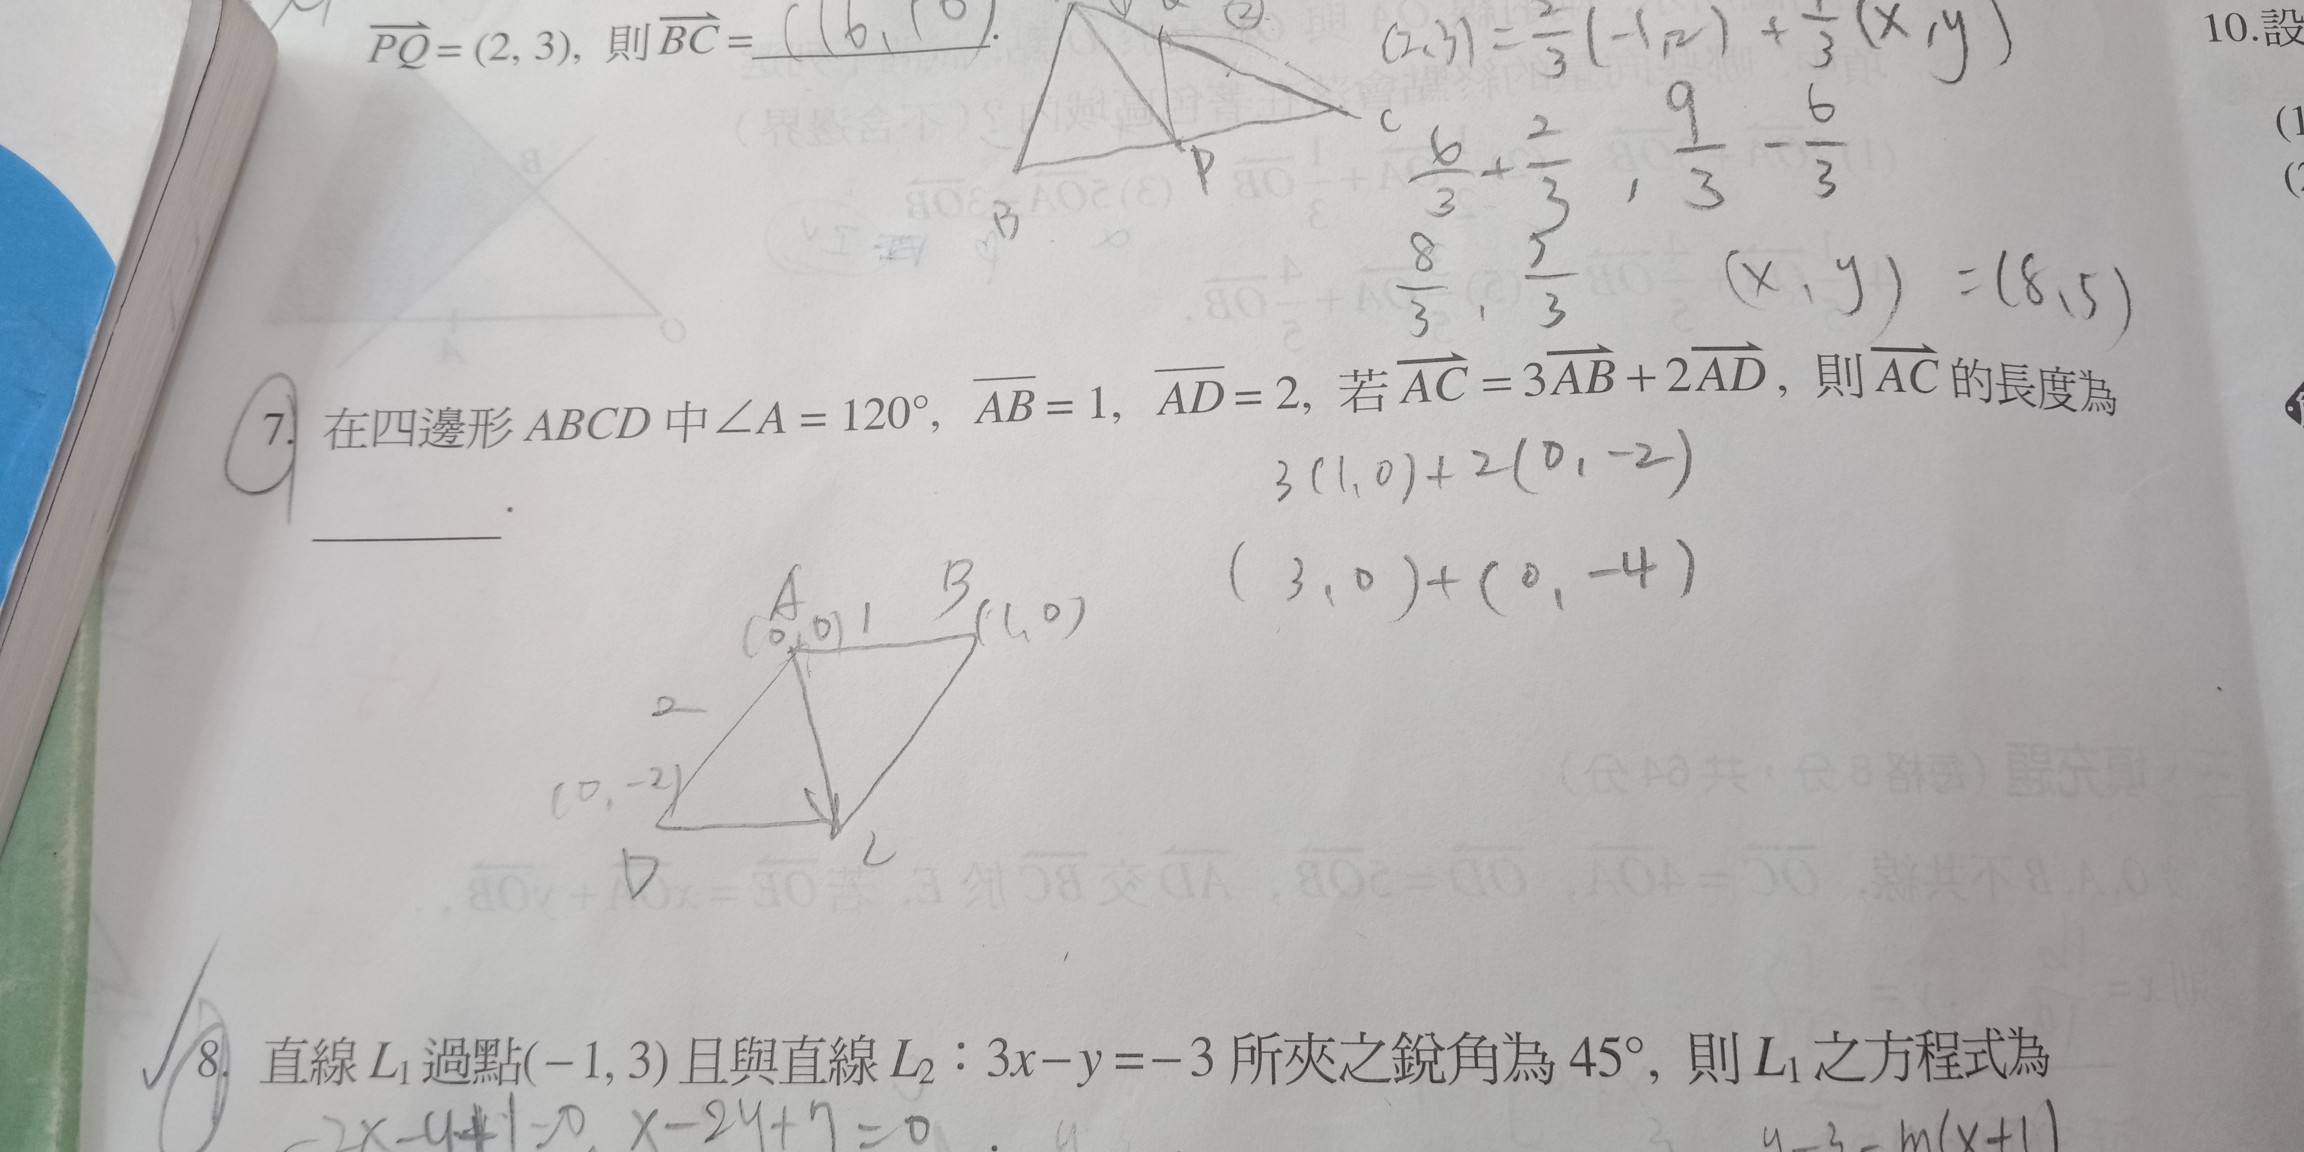 PQ = (2, 3), 則 BC = (16, 10).
②
(2,3) = 2/3 (-1,2) + 1/3 (x,y)
10.設
C
P
B
6/3 + 2/3 , 9/3 - 6/3
8/3 , 5/3 (x, y) = (8,5)
7. 在四邊形 ABCD 中∠A = 120°, AB = 1, AD = 2, 若 AC = 3AB + 2AD, 則 AC 的長度為
3(1,0)+2(0,-2)
.
(3,0)+(0,-4)
A B
(0,0) 1 (1,0)
2
(0,-2)
D C
8. 直線 L₁ 過點(−1, 3) 且與直線 L₂：3x−y=−3 所夾之銳角為 45°, 則 L₁ 之方程式為
x-2y+7=0
y-3=m(x+1)